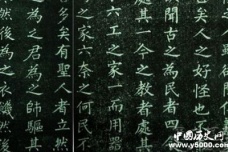 矣人之好怪也
聞古之為民者四
其一今之教者處其
六工之家一而用器
家六奈之何民
多矣有聖人者立然
之為之君為之師驅其
然後為之衣飢然後
中国历史网
www.y5000.com